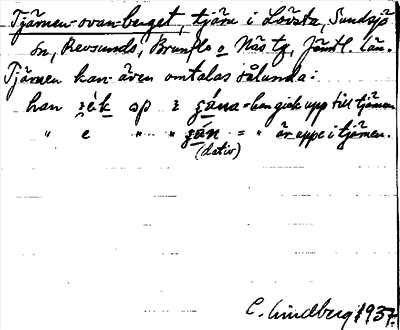 Tjärnen-ovan-berget, tjärn i Lövsta, Sundsjö
sn, Revsunds, Brunflo o Näs tg, Jämtl. län.
Tjärnen kan även omtalas sålunda:
han gék op i = han gick upp till tjärnen
" e " " = " är uppe i tjärnen.
(dativ)
C. Lindberg 1937.